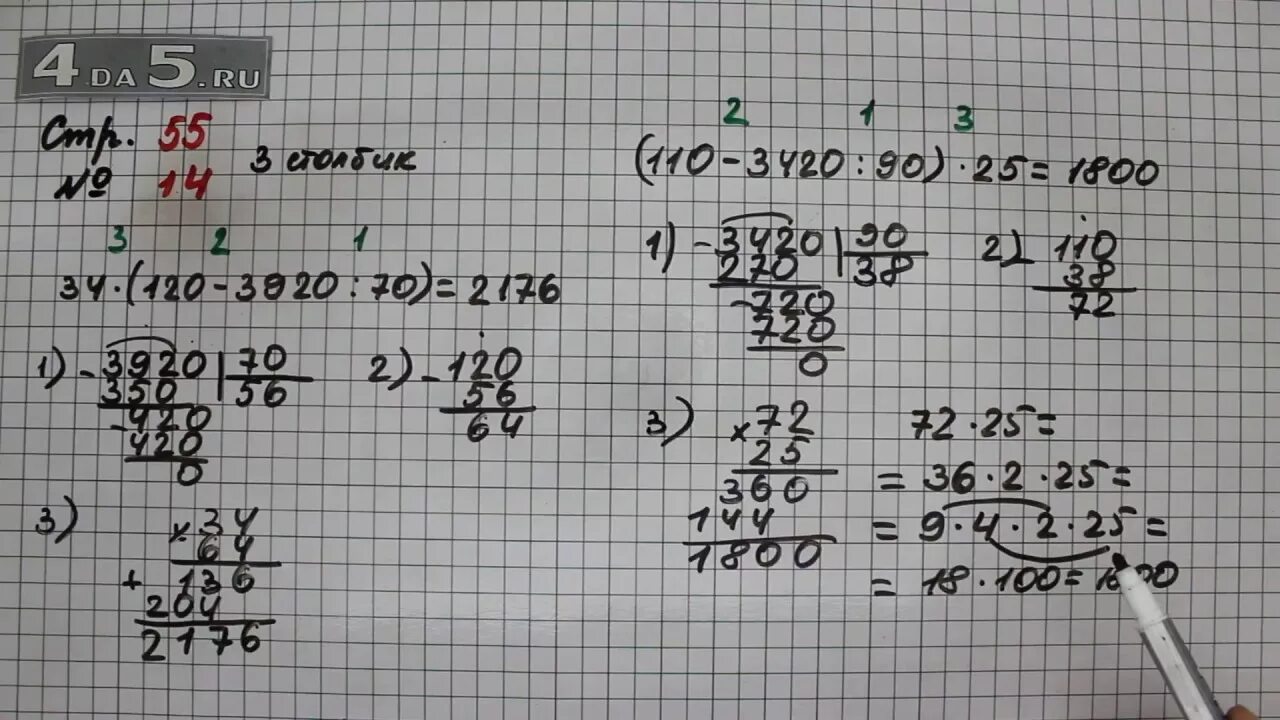 4.DA 5.RU
Стр. 55
№ 14
3 столбик
3 2 1
34·(120-3920:70)=2176
1) - 3920 | 70
350 56
- 420
420
0
2) - 120
56
64
3)
× 34
64
+ 136
204
2176
2 1 3
(110-3420:90)·25=1800
1) - 3420 | 90
270 38
- 720
720
0
2) - 110
38
72
3)
× 72
25
360
144
1800
72·25=
= 36·2·25=
= 9·4·2·25=
= 18·100=1800